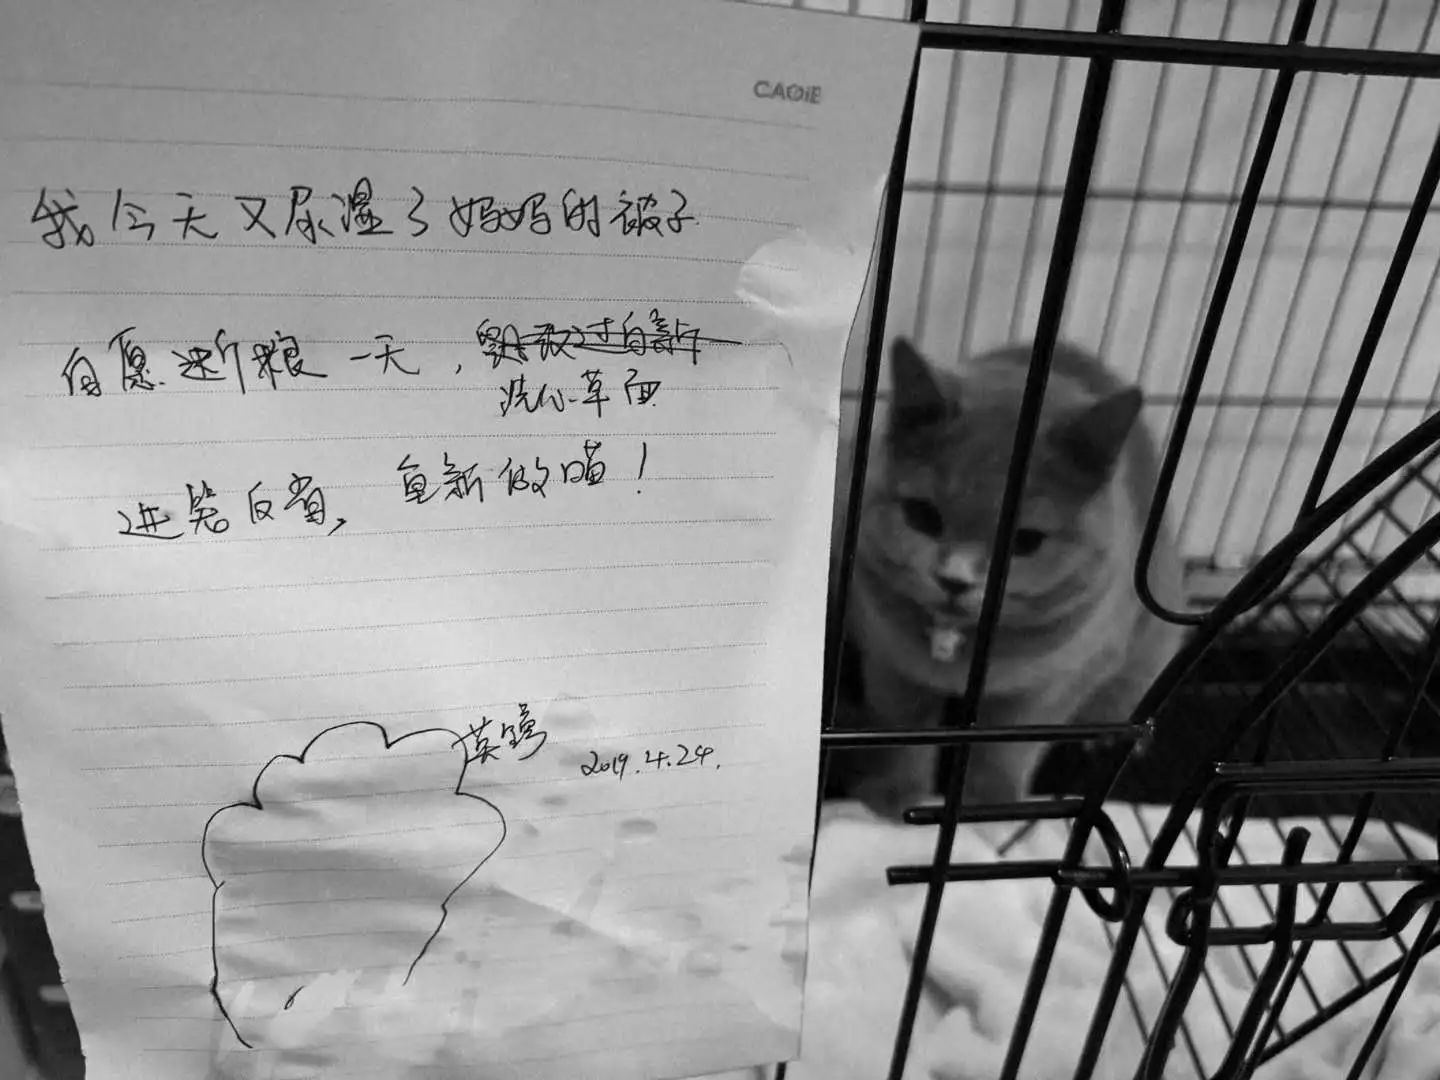 CAGIE
我今天又尿湿了妈妈的被子
自愿断粮一天，改过自新
洗心革面
进笼反省，重新做喵！
2019.4.24.